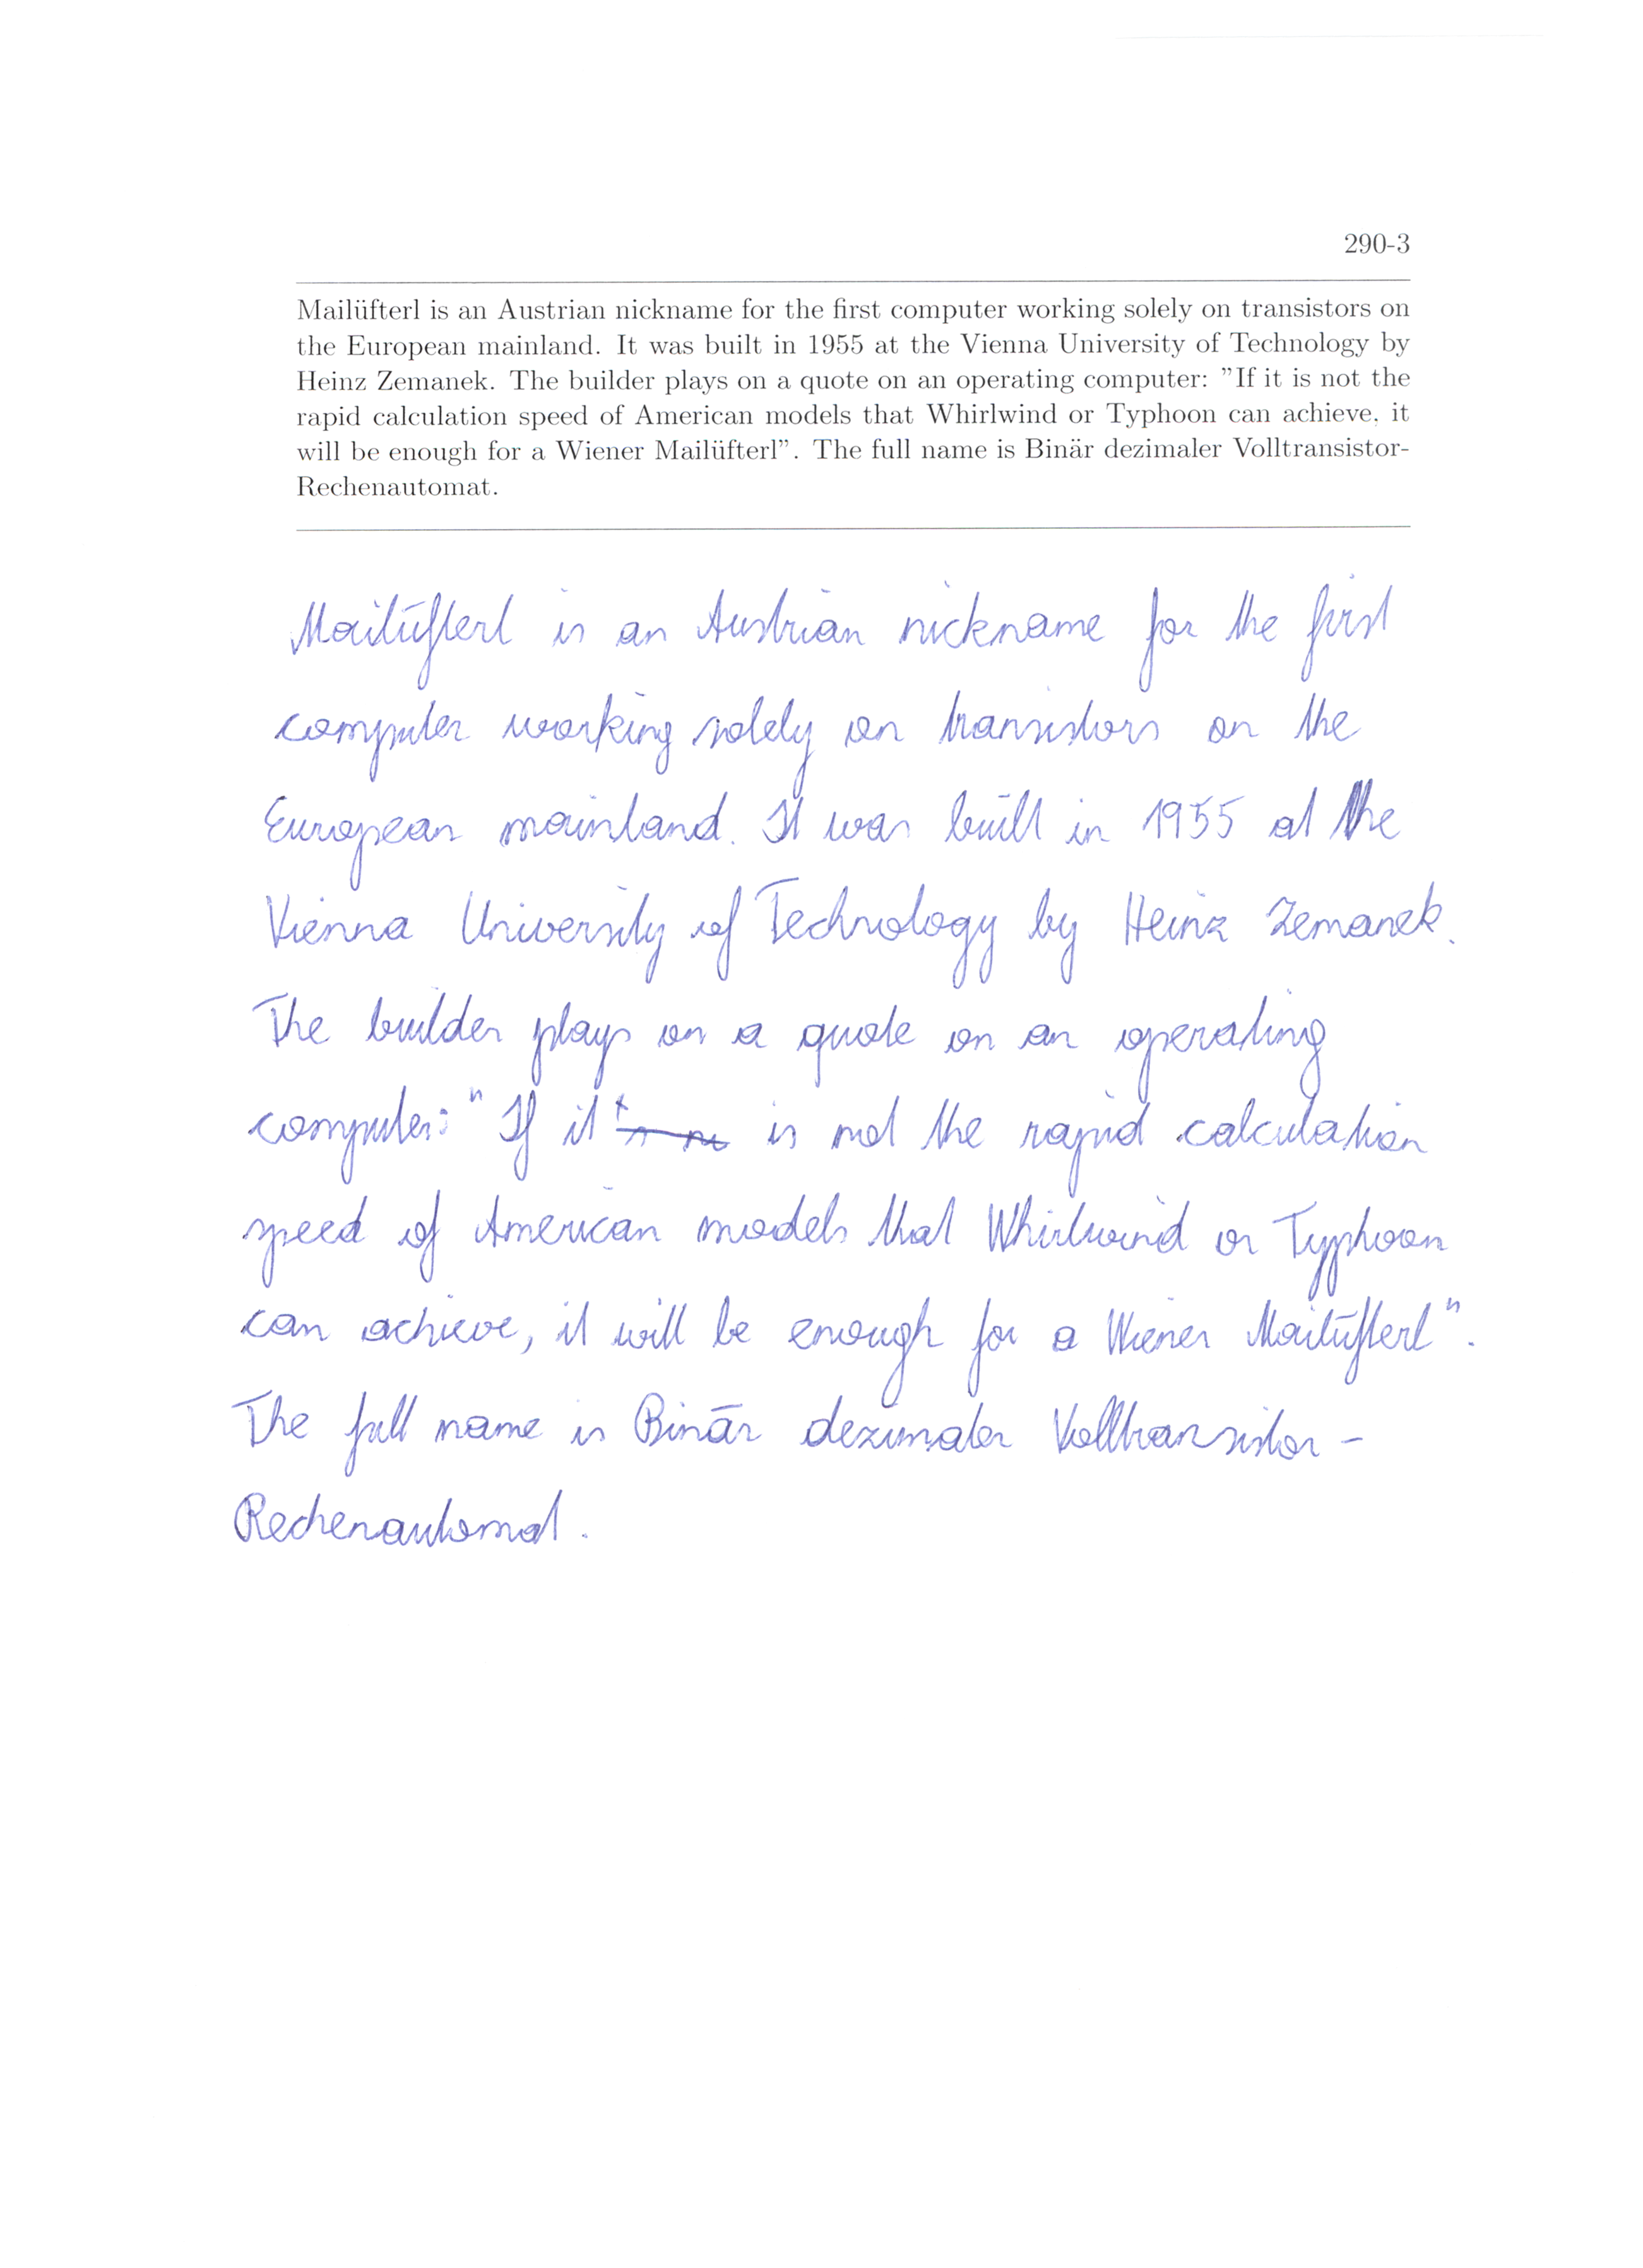 290-3
Mailüfterl is an Austrian nickname for the first computer working solely on transistors on
the European mainland. It was built in 1955 at the Vienna University of Technology by
Heinz Zemanek. The builder plays on a quote on an operating computer: "If it is not the
rapid calculation speed of American models that Whirlwind or Typhoon can achieve, it
will be enough for a Wiener Mailüfterl". The full name is Binär dezimaler Volltransistor-
Rechenautomat.
Mailüfterl is an Austrian nickname for the first
computer working solely on transistors on the
European mainland. It was built in 1955 at the
Vienna University of Technology by Heinz Zemanek.
The builder plays on a quote on an operating
computer: "If it is not the rapid calculation
speed of American models that Whirlwind or Typhoon
can achieve, it will be enough for a Wiener Mailüfterl".
The full name is Binär dezimaler Volltransistor-
Rechenautomat.